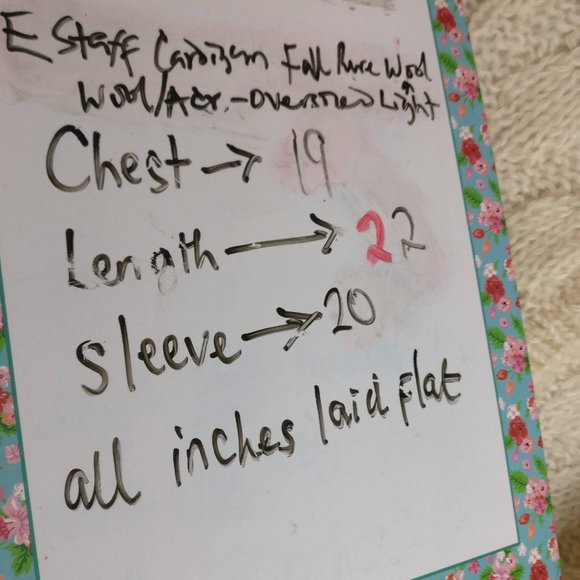 E Staff Cardigan Full Pure Wool
Wool/Acr.-Oversized Light
Chest → 19
Length → 22
Sleeve → 20
all inches laid flat